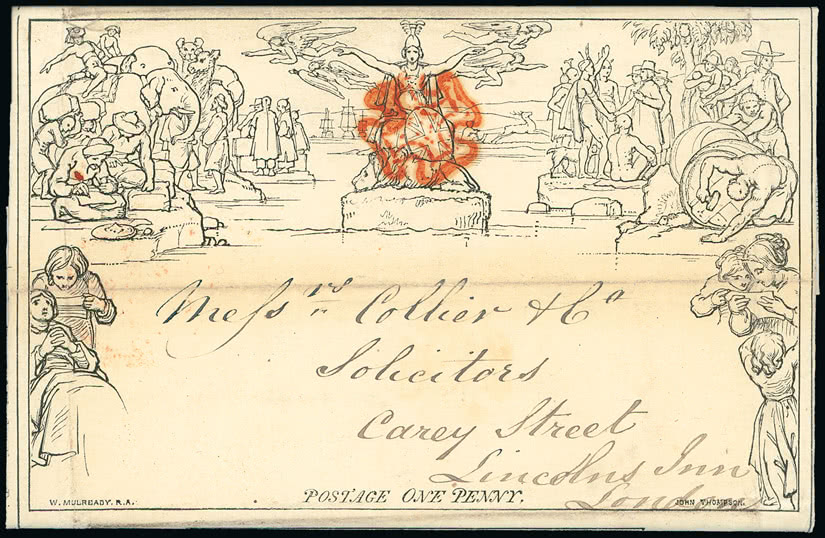 Messrs Collier & Co
Solicitors
Carey Street
Lincolns Inn
London
POSTAGE ONE PENNY.
W. MULREADY. R.A.
JOHN THOMPSON.